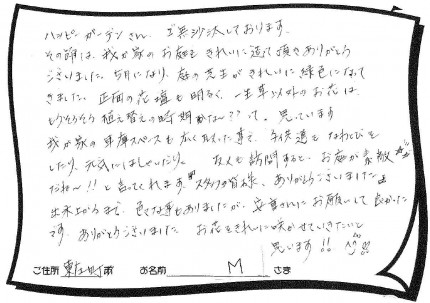 ハッピーガーデンさん、ご無沙汰しております。
その節は、我が家のお庭をきれいに造って頂きありがとう
ございました。5月になり、庭の芝生がきれいに緑色になって
きました。正面の花壇も明るく、一年草以外のお花は、
もうそろそろ植え替えの時期かな〜??って。思っています
我が家の車庫スペースも広くなった事で、子供達もなわとびを
したり、元気にはしゃいだり。友人も訪問すると、お庭が素敵
だね〜!!と言ってくれます。スタッフの皆様、ありがとうございました。
出来上がるまで、色々な事もありましたが、安事さんにお願いして良かった
です。ありがとうございました。お花をきれいに咲かせていきたいと
思います!!
ご住所 東左町 お名前 M さま